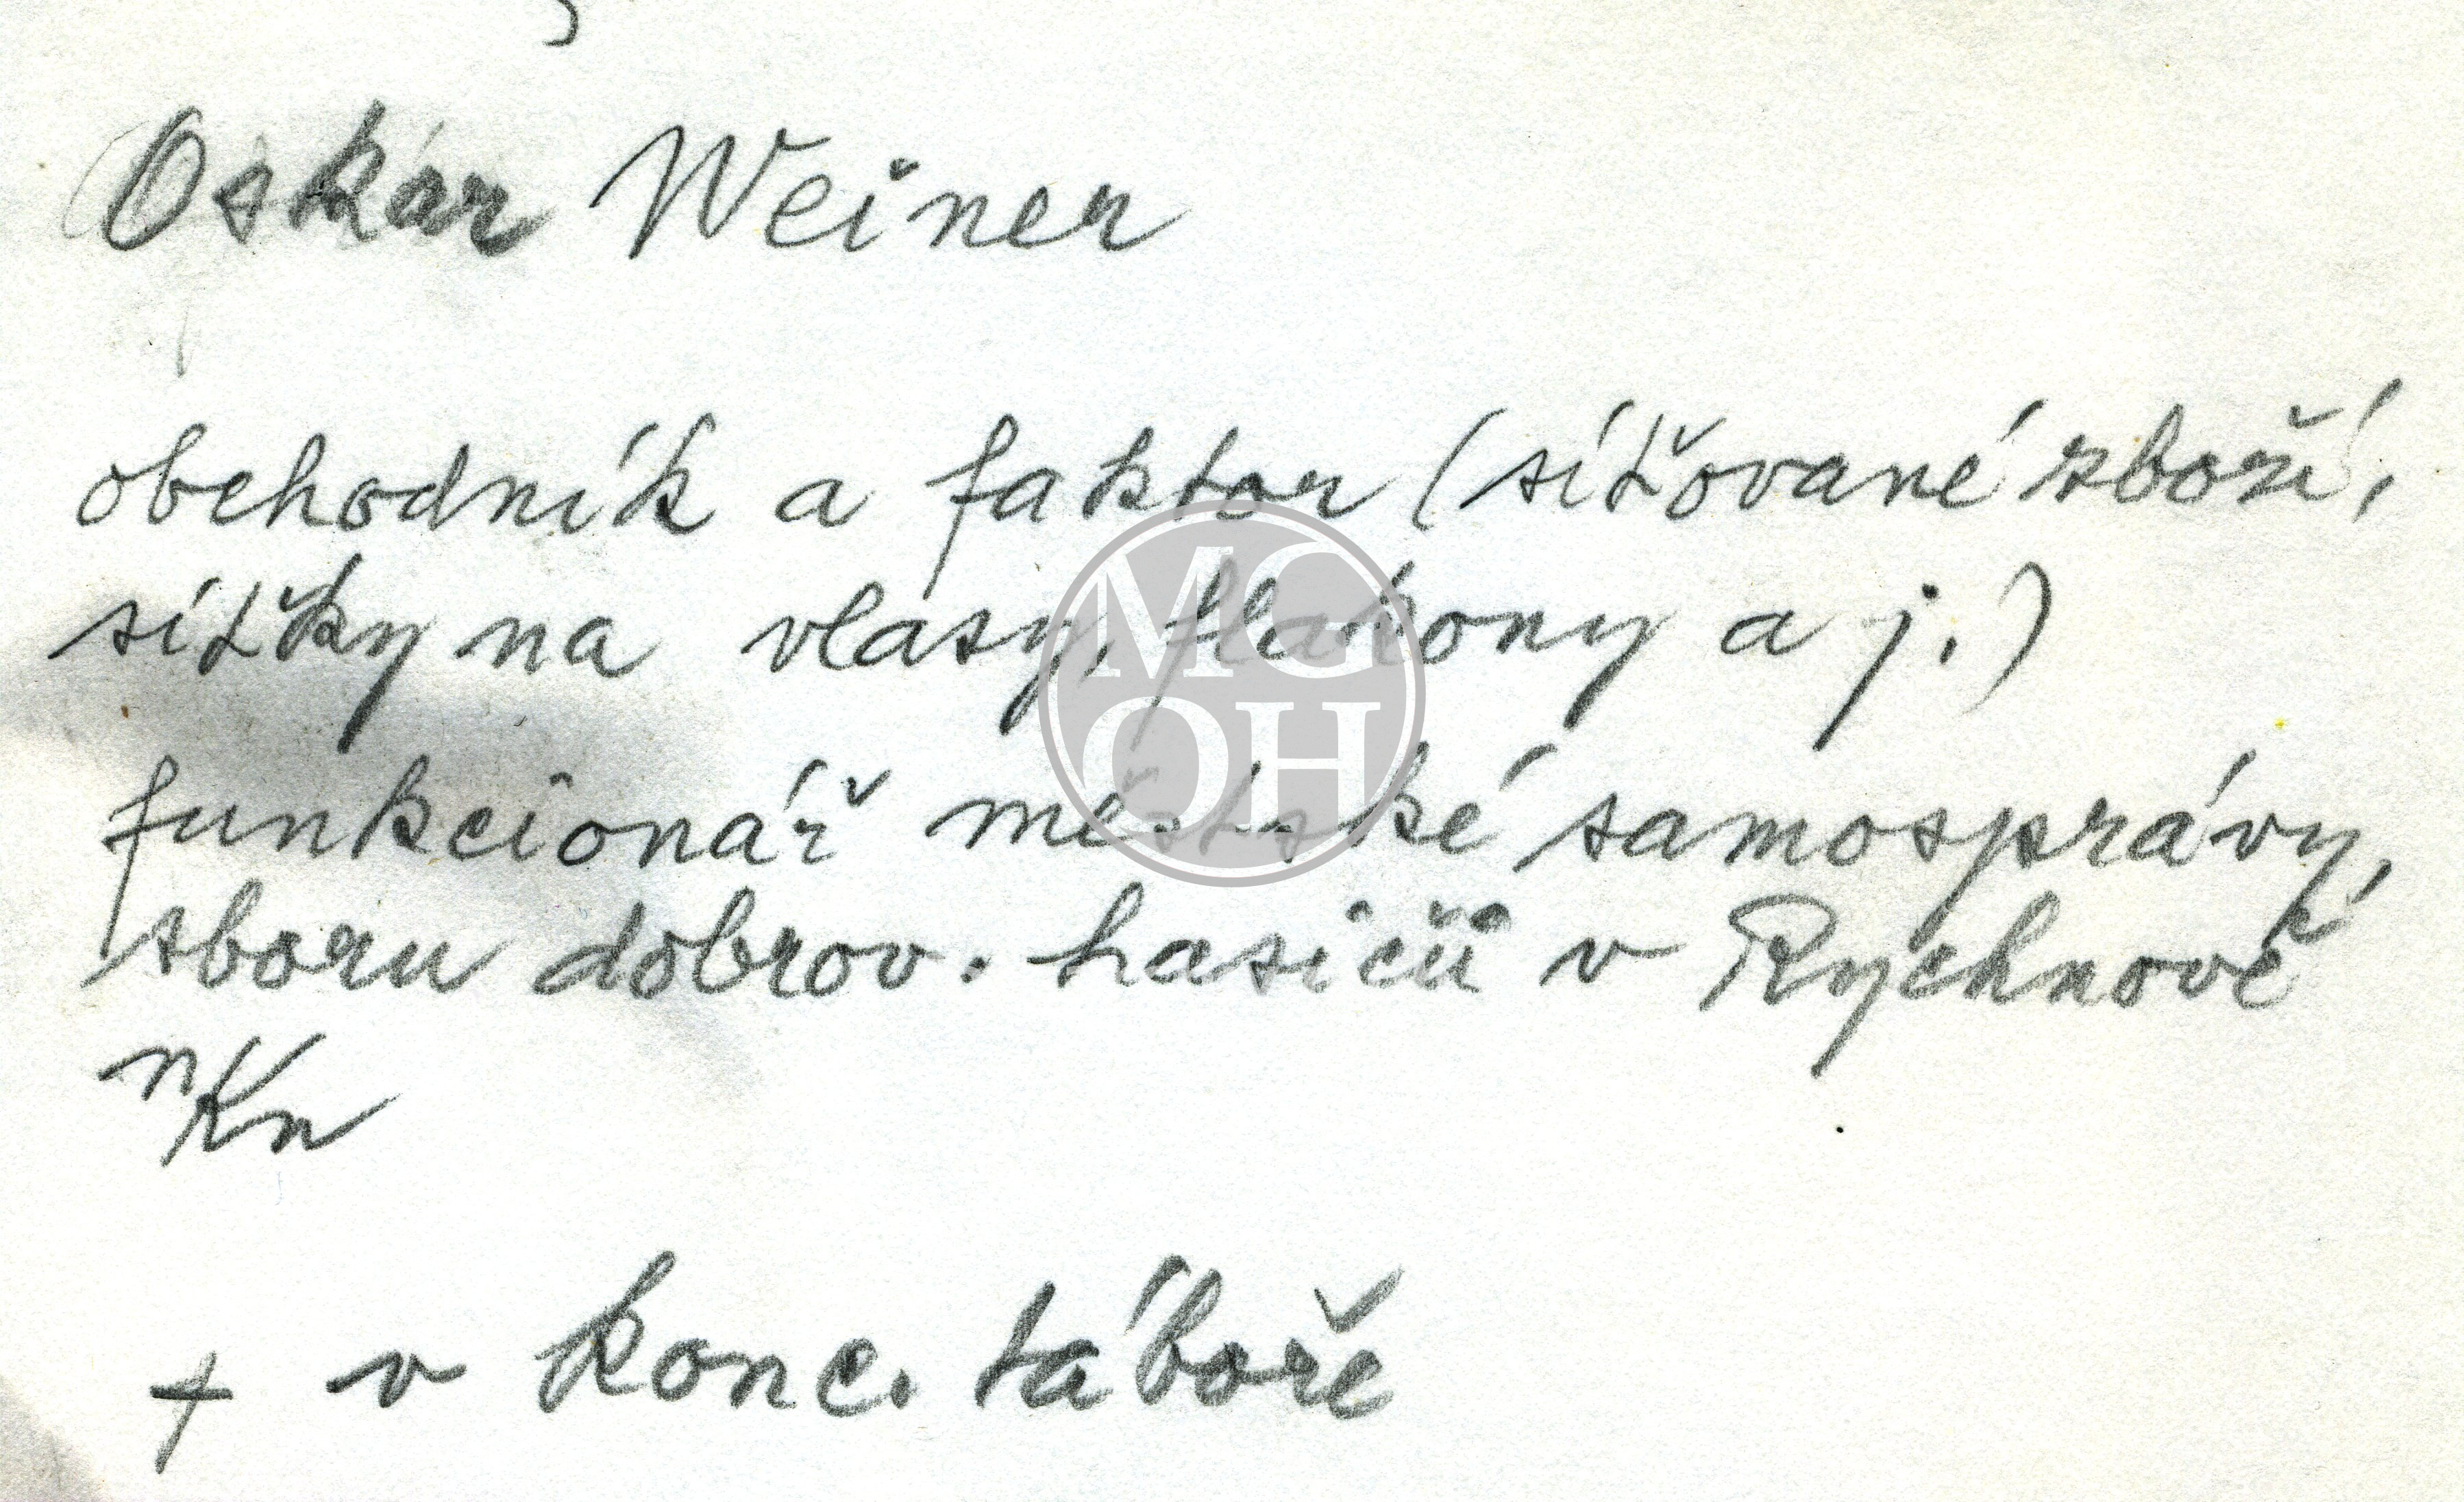 Oskar Weiner
obchodník a faktor (síťované zboží,
síťky na vlasy, flakony a j.)
funkcionář městské samosprávy,
sboru dobrov. hasičů v Rychnově
n/Kn
+ v konc. táboře
MG
OH